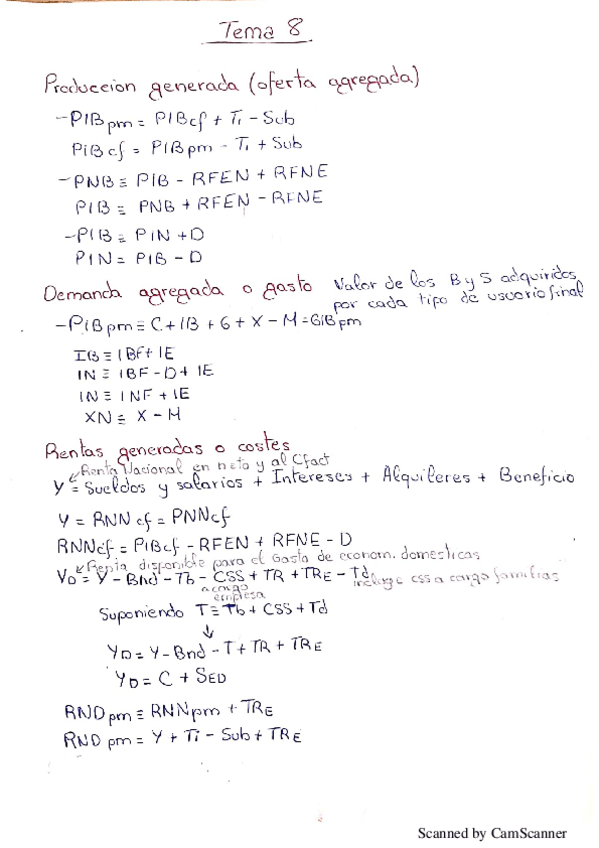 Tema 8
Produccion generada (oferta agregada)
-PIBpm = PIBcf + Ti - Sub
PIBcf = PIBpm - Ti + Sub
-PNB ≡ PIB - RFEN + RFNE
PIB ≡ PNB + RFEN - RFNE
-PIB ≡ PIN + D
PIN = PIB - D
Demanda agregada o gasto Valor de los B y S adquiridos
por cada tipo de usuario final
-PIBpm ≡ C + IB + G + X - M = GIBpm
IB ≡ IBF + IE
IN ≡ IBF - D + IE
IN ≡ INF + IE
XN ≡ X - M
Rentas generadas o costes
Renta Nacional en neto y al Cfact
Y = Sueldos y salarios + Intereses + Alquileres + Beneficio
Y = RNNcf = PNNcf
RNNcf = PIBcf - RFEN + RFNE - D
Renta disponible para el Gasto de econom. domesticas
YD = Y - Bnd - Tb - CSS + TR + TRE - Td incluye css a cargo familias
a cargo
empresa
Suponiendo T ≡ Tb + CSS + Td
↓
YD = Y - Bnd - T + TR + TRE
YD = C + SED
RNDpm ≡ RNNpm + TRE
RNDpm = Y + Ti - Sub + TRE
Scanned by CamScanner